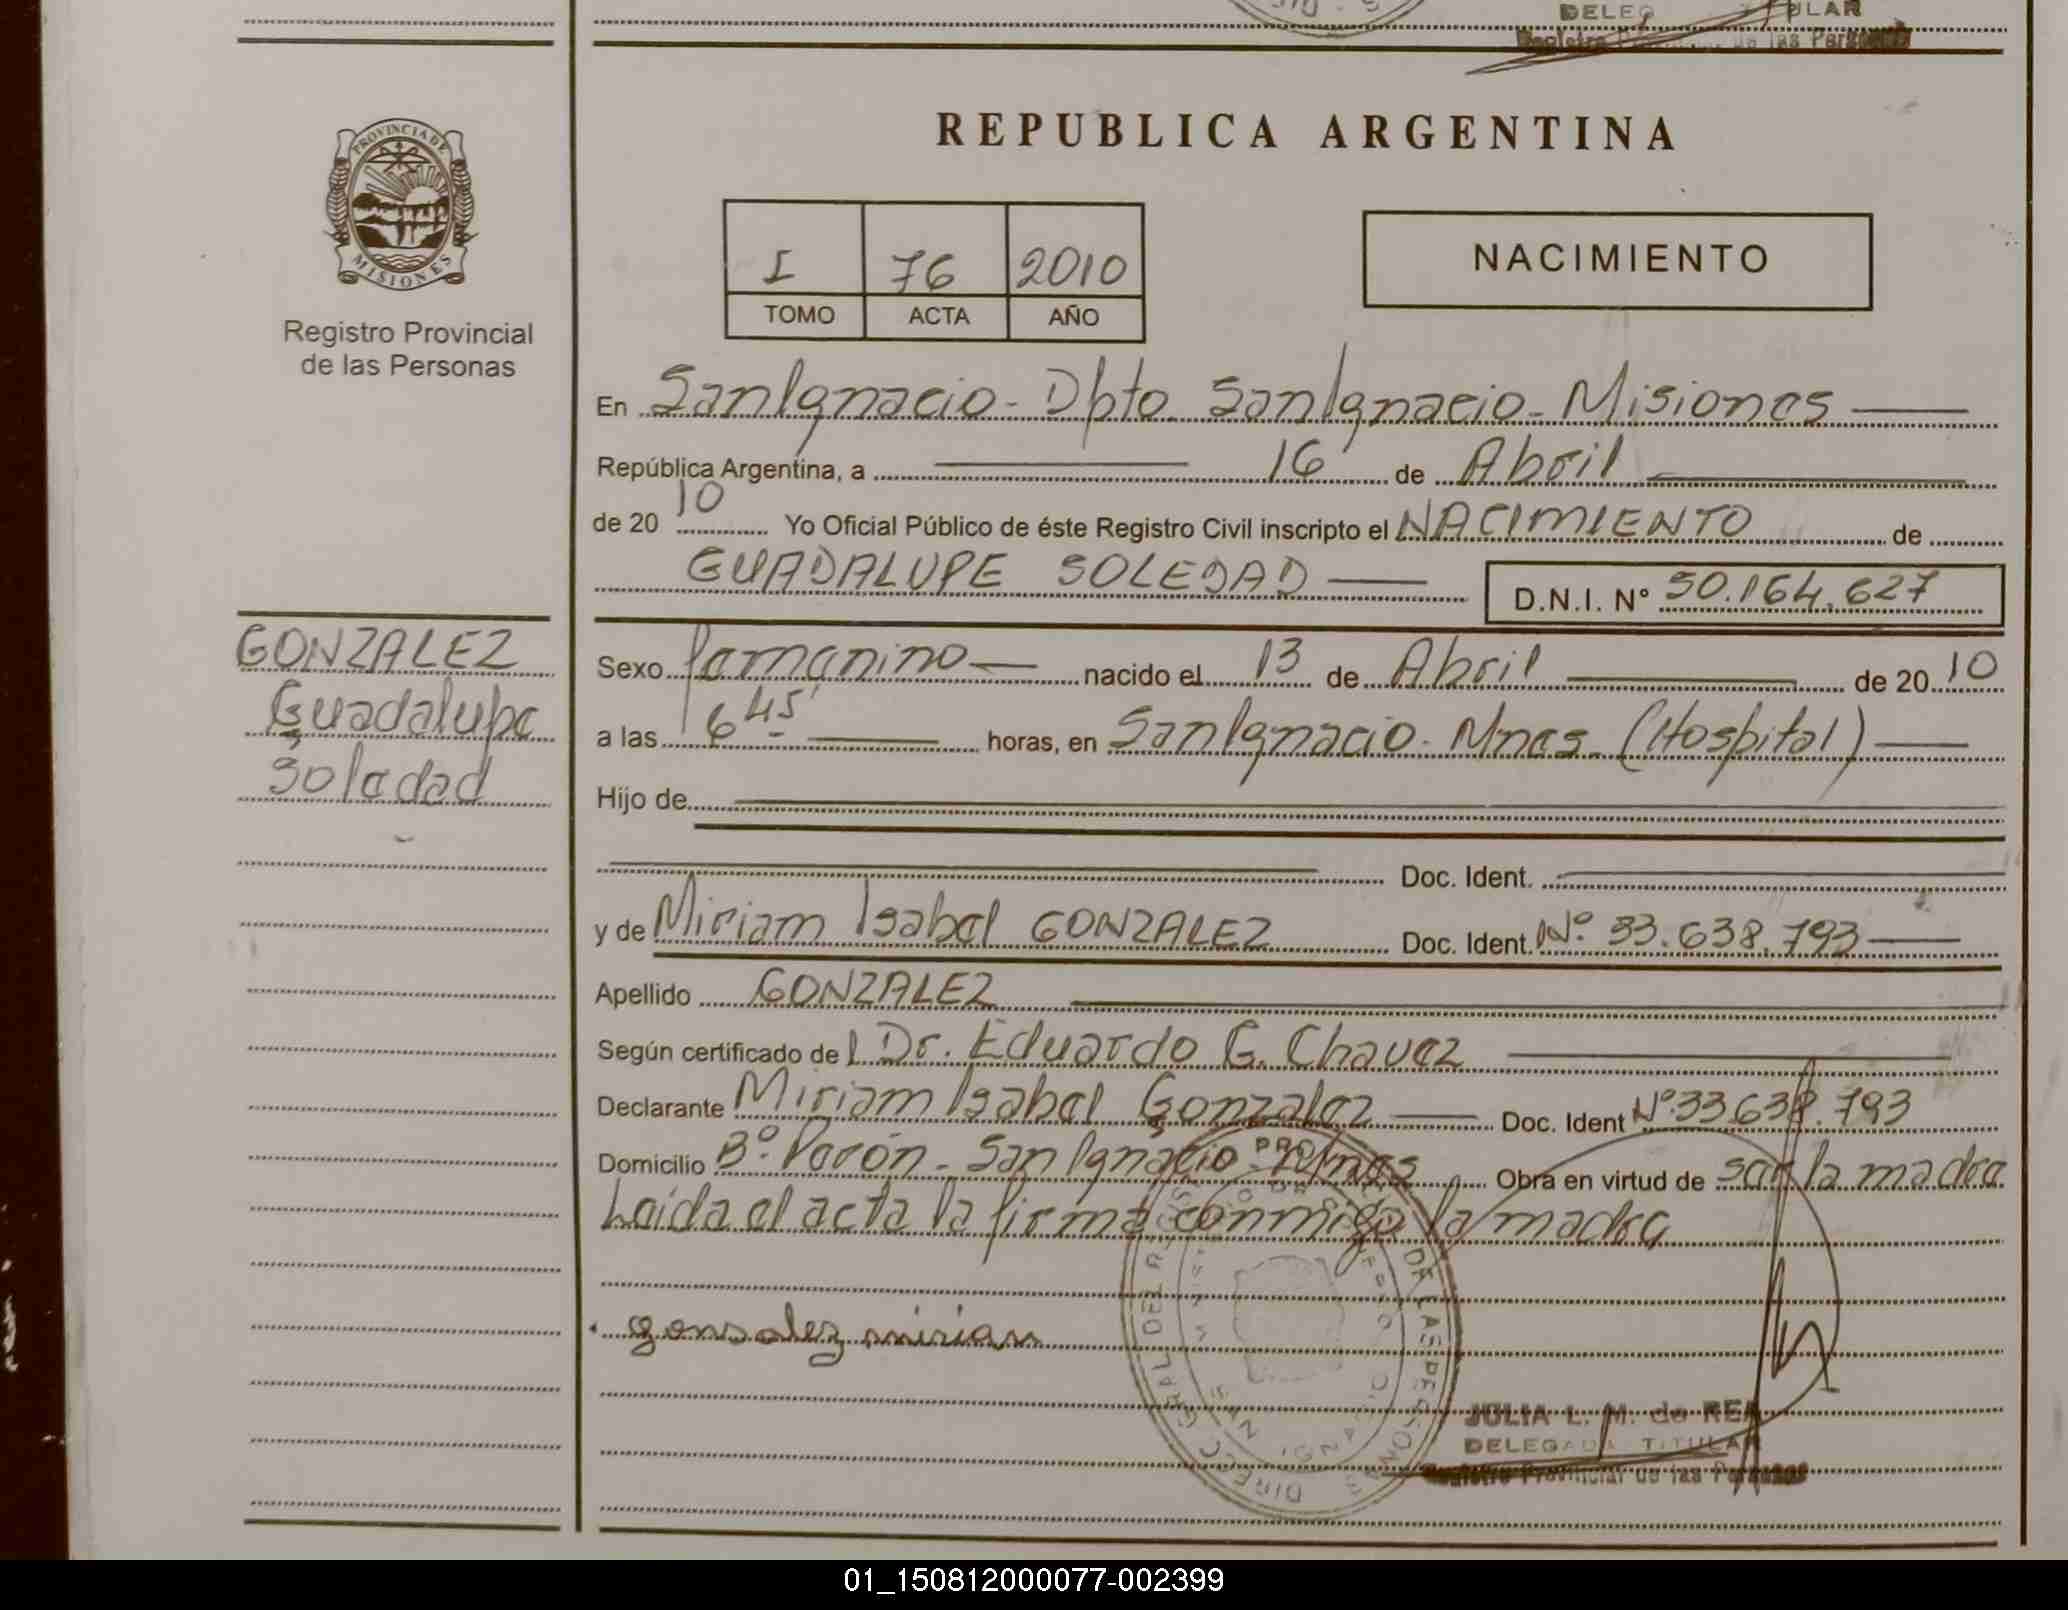 DELEG TULAR
Registro de las Personas
PROVINCIA DE
MISIONES
Registro Provincial
de las Personas
REPUBLICA ARGENTINA
I 76 2010
TOMO ACTA AÑO
NACIMIENTO
En San Ignacio - Dpto San Ignacio - Misiones
República Argentina, a 16 de Abril
de 20 10 Yo Oficial Público de éste Registro Civil inscripto el NACIMIENTO de
GUADALUPE SOLEDAD D.N.I. N° 50.164.627
GONZALEZ
Guadalupe
Soledad
Sexo femenino nacido el 13 de Abril de 20 10
a las 6 45' horas, en San Ignacio - Mnes. (Hospital)
Hijo de
Doc. Ident.
y de Miriam Isabel GONZALEZ Doc. Ident. Nº. 33.638.793
Apellido GONZALEZ
Según certificado de l Dr. Eduardo G. Chavez
Declarante Miriam Isabel Gonzalez Doc. Ident Nº.33638.793
Domicilio Bº. Perón - San Ignacio - Mnes Obra en virtud de ser la madre
Leída el acta la firma conmigo la madre
gonsalez mirian
JULIA L. M. de REA
DELEGADA TITULAR
Registro Provincial de las Personas
01_150812000077-002399